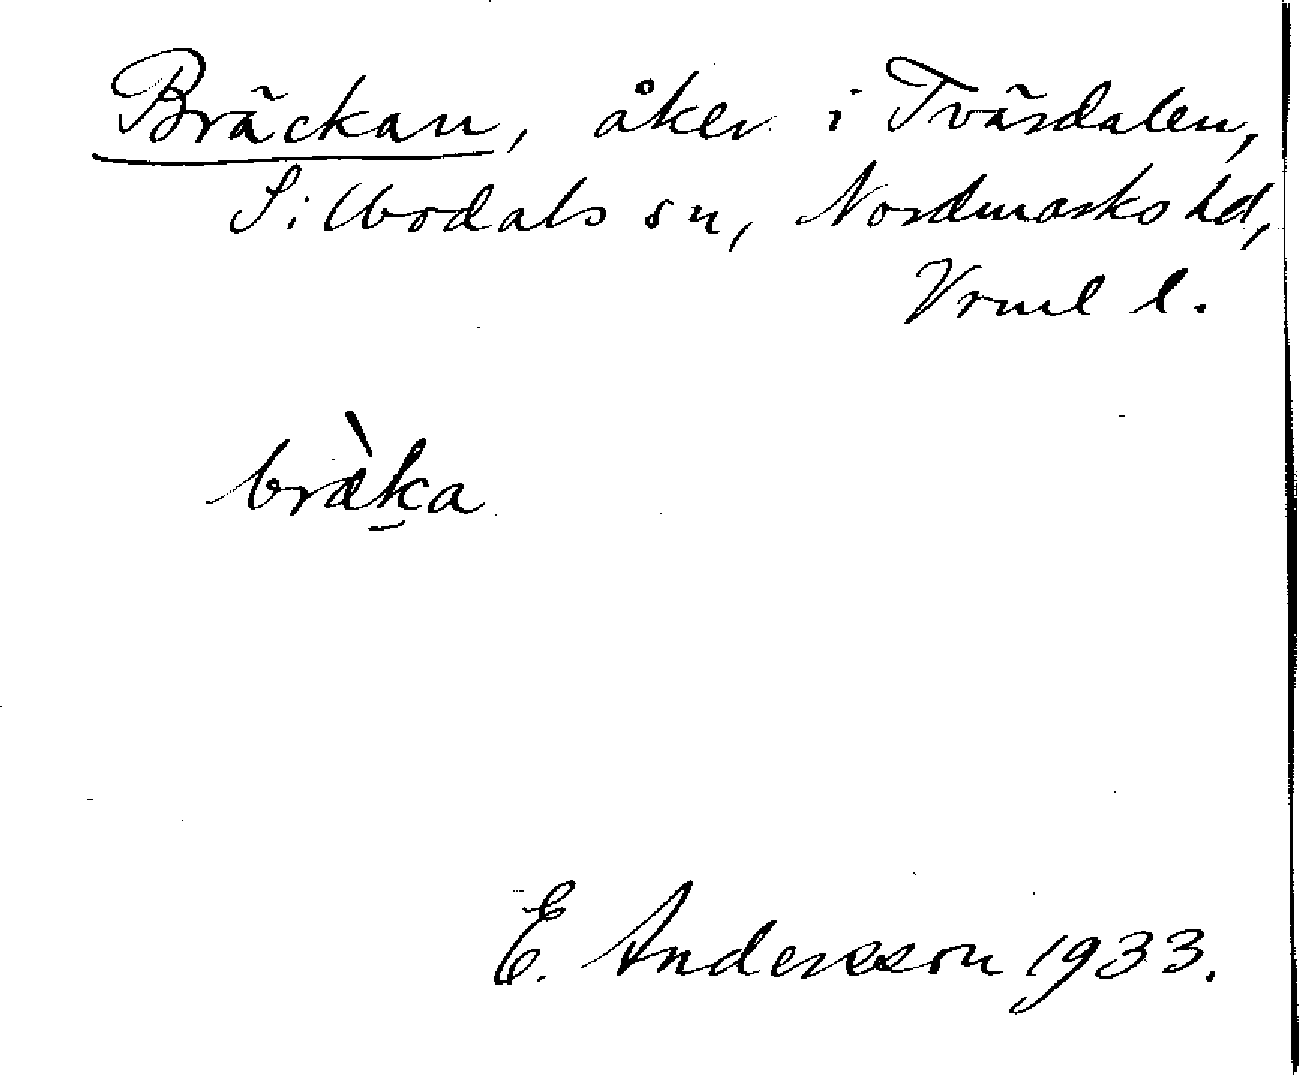 Bräckan, åker i Tvärdalen,
Silbodals sn, Nordmarks hd,
Vrml l.
bræ̀k̠a
E. Andersson 1933.